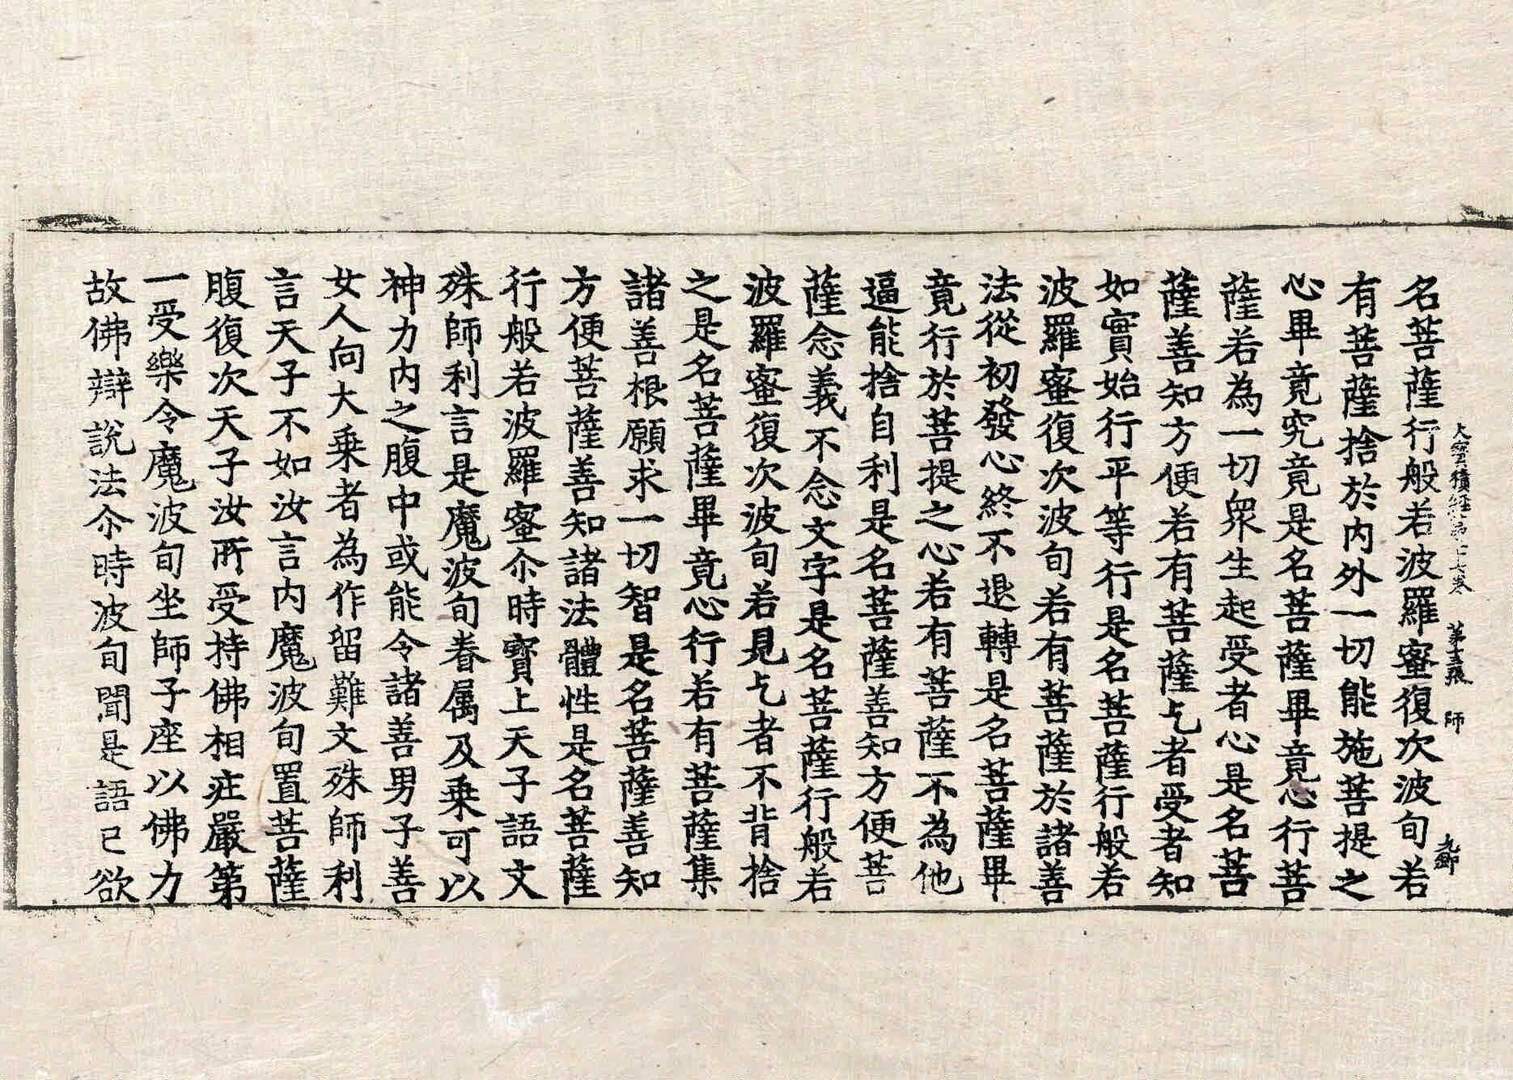 名菩薩行般若波羅蜜復次波旬若
有菩薩捨於內外一切能施菩提之
心畢竟究竟是名菩薩畢竟心行菩
薩若為一切眾生起受者心是名菩
薩善知方便若有菩薩乞者受者知
如實始行平等行是名菩薩行般若
波羅蜜復次波旬若有菩薩於諸善
法從初發心終不退轉是名菩薩畢
竟行於菩提之心若有菩薩不為他
逼能捨自利是名菩薩善知方便菩
薩念義不念文字是名菩薩行般若
波羅蜜復次波旬若見乞者不背捨
之是名菩薩畢竟心行若有菩薩集
諸善根願求一切智是名菩薩善知
方便菩薩善知諸法體性是名菩薩
行般若波羅蜜尒時寶上天子語文
殊師利言是魔波旬眷屬及乗可以
神力內之腹中或能令諸善男子善
女人向大乗者為作留難文殊師利
言天子不如汝言內魔波旬置菩薩
腹復次天子汝所受持佛相庄嚴第
一受樂令魔波旬坐師子座以佛力
故佛辯說法尒時波旬聞是語已欲
大寶積經第 卷 第 張 師